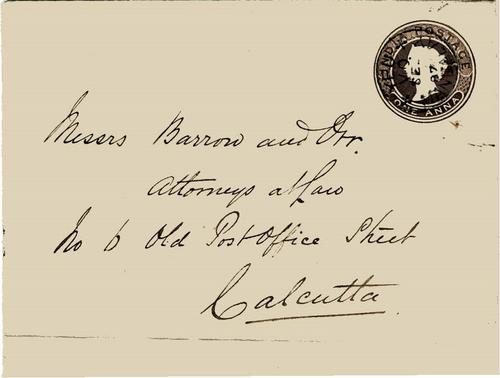 INDIA POSTAGE
ONE ANNA
Messrs Barrow and Orr.
Attorneys at Law
No 6 Old Post Office Street
Calcutta